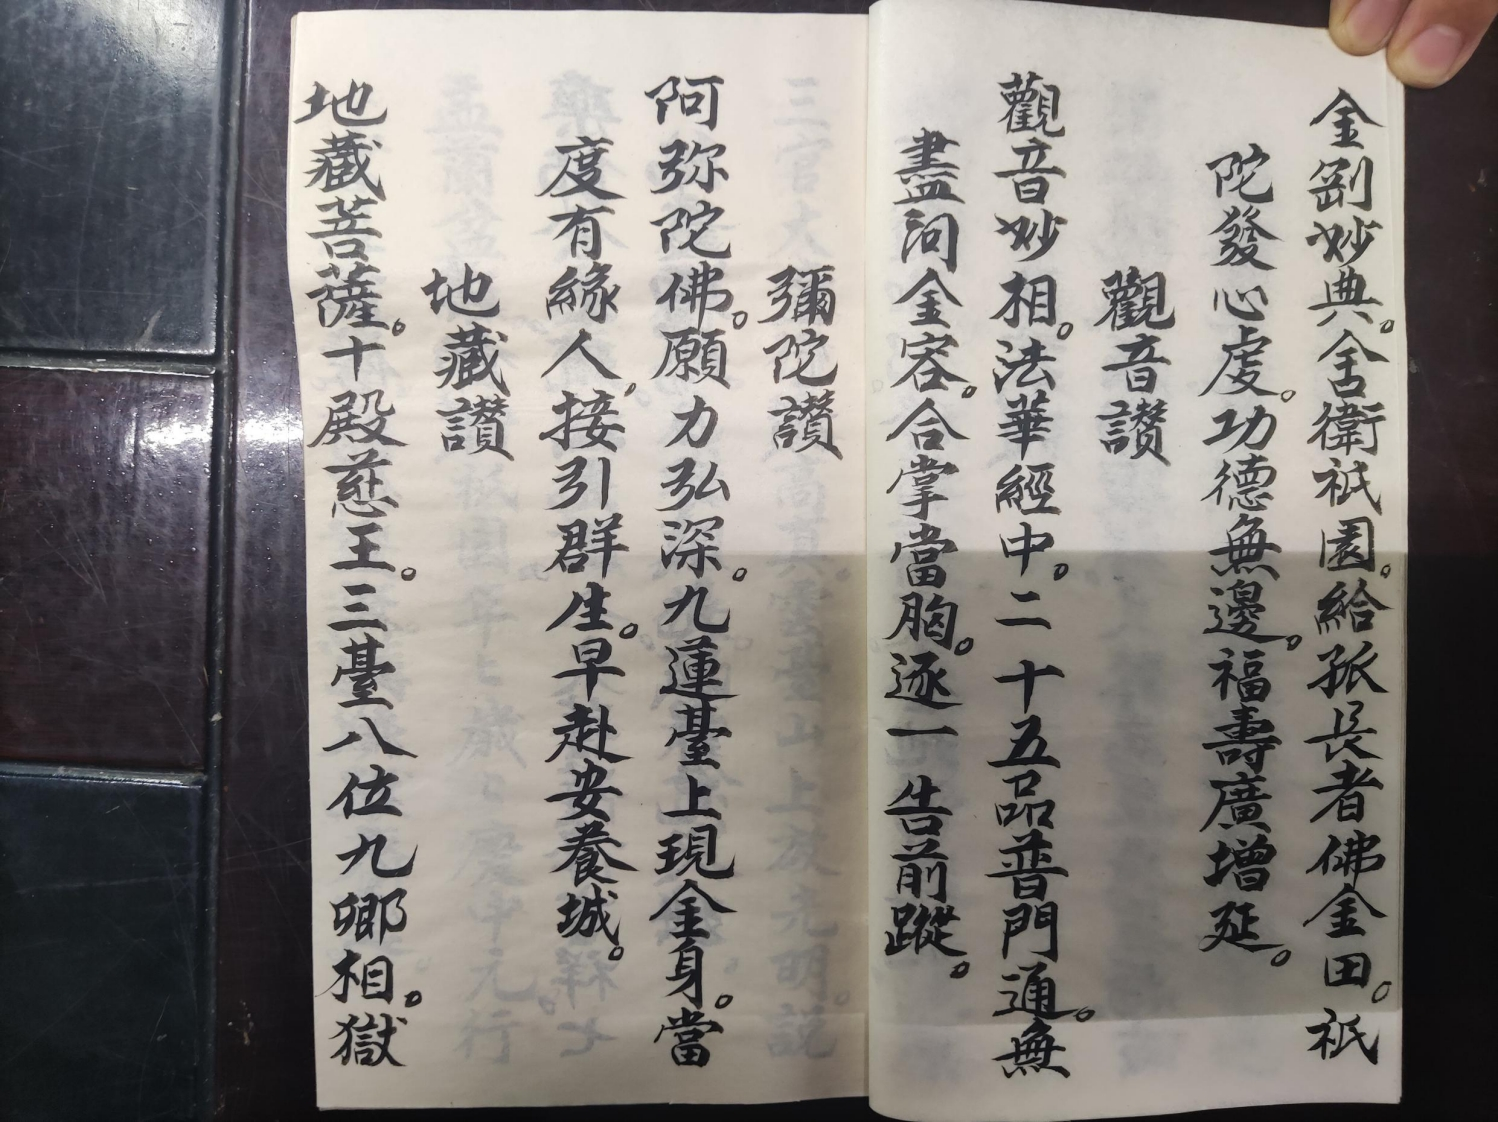 金剛妙典。舍衛祇園。給孤長者佛金田。祇
陀發心虔。功德無邊。福壽廣增延。
觀音讚
觀音妙相。法華經中。二十五品普門通。無
盡问金容。合掌當胸。逐一告前蹤。
彌陀讚
阿弥陀佛。願力弘深。九蓮臺上現金身。當
度有緣人，接引群生。早赴安養城。
地藏讚
地藏菩薩。十殿慈王。三臺八位九卿相。獄